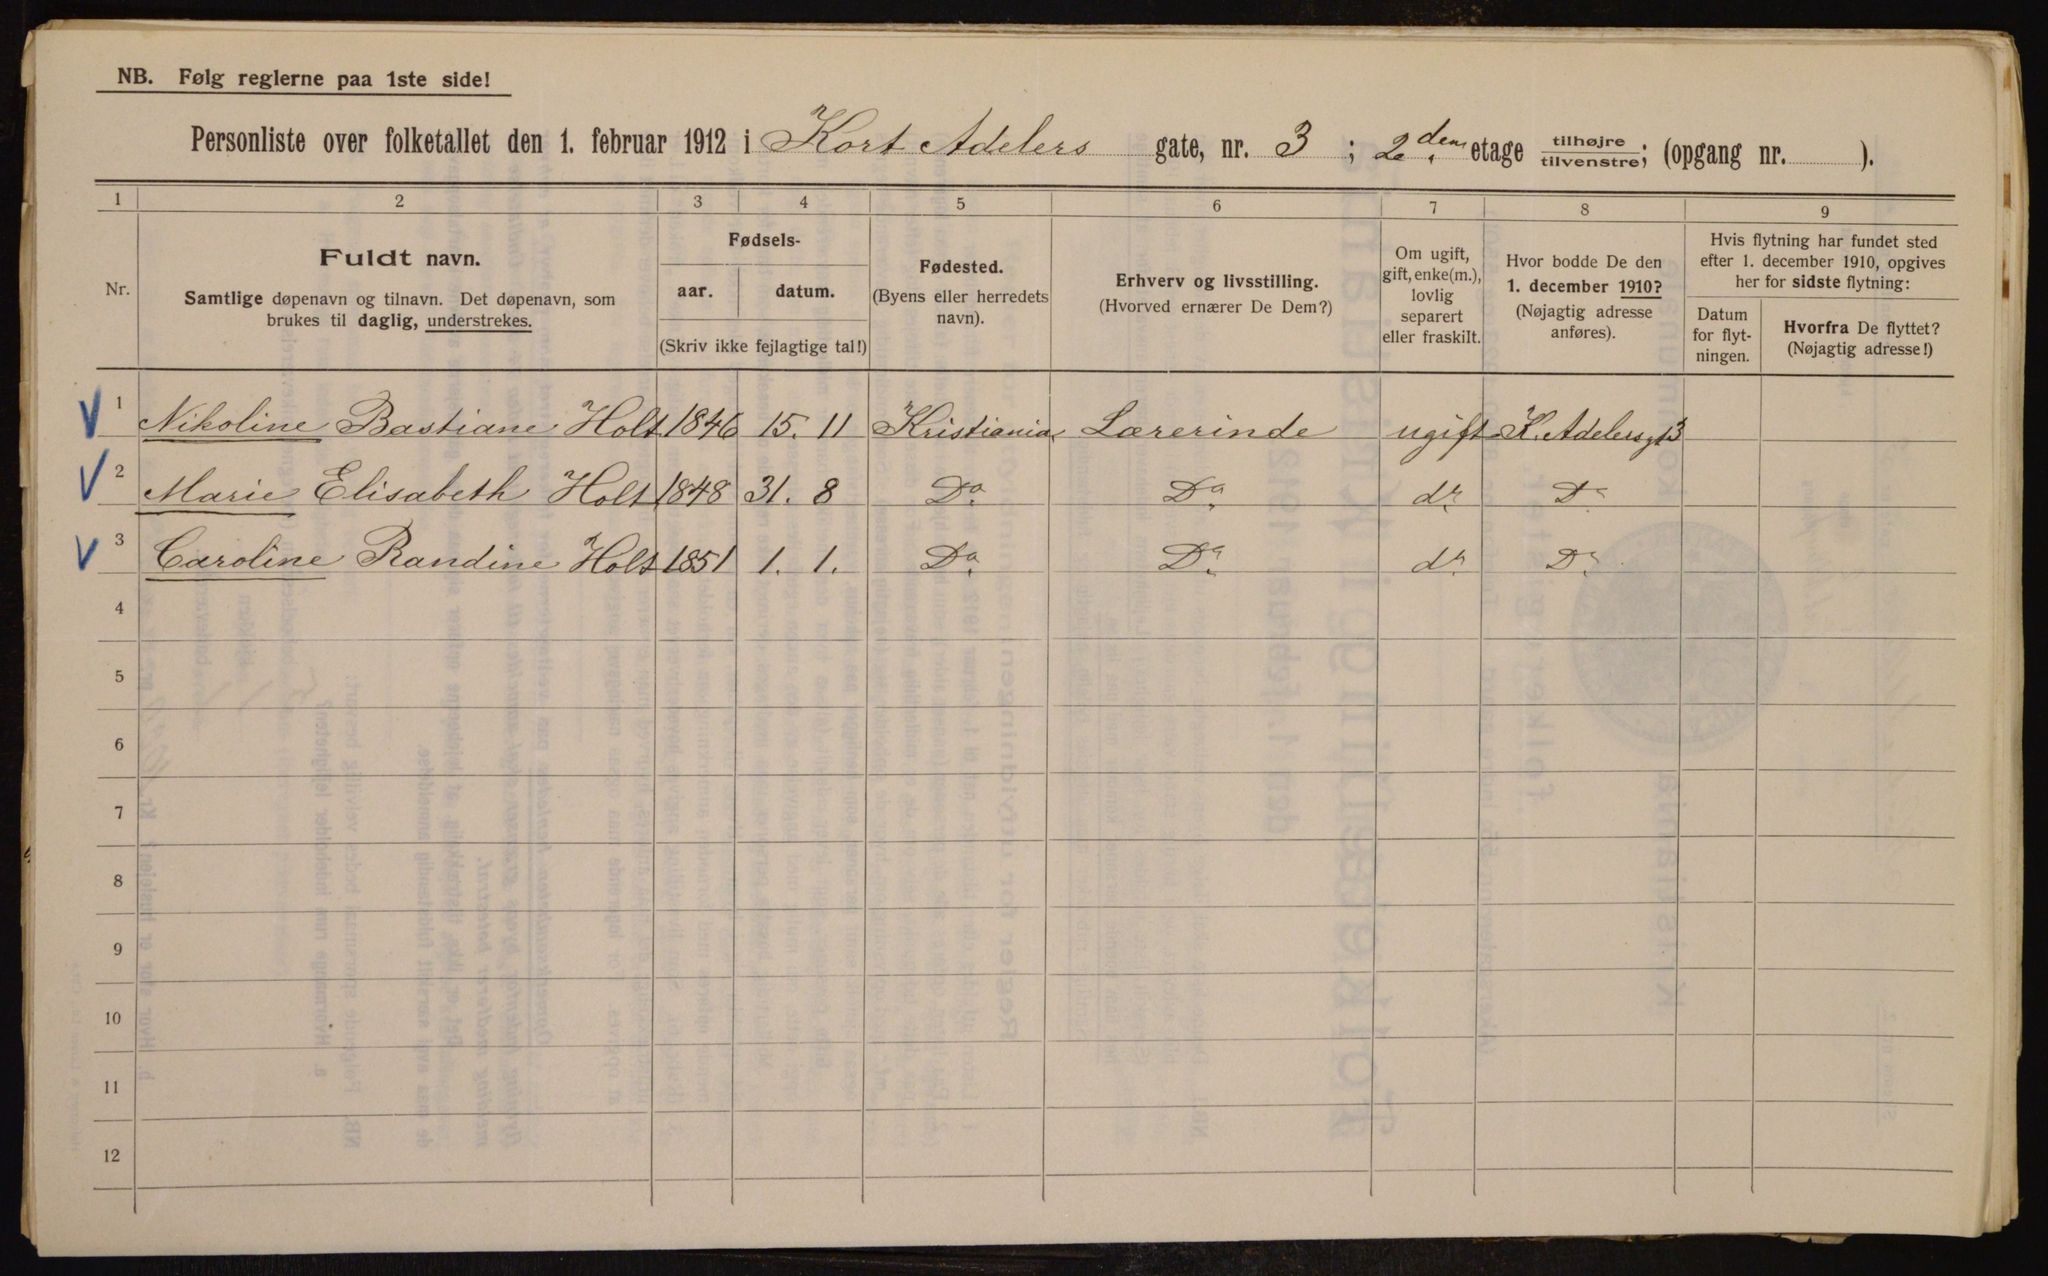 NB. Følg reglerne paa 1ste side!
Personliste over folketallet den 1. februar 1912 i Kort Adelers gate, nr. 3 ; 2dem etage tilhøjre/tilvenstre; (opgang nr. ).
1 2 3 4 5 6 7 8 9
Nr.
Fuldt navn.
Samtlige døpenavn og tilnavn. Det døpenavn, som
brukes til daglig, understrekes.
Fødsels-
aar. datum.
(Skriv ikke fejlagtige tal!)
Fødested.
(Byens eller herredets
navn).
Erhverv og livsstilling.
(Hvorved ernærer De Dem?)
Om ugift,
gift, enke(m.),
lovlig
separert
eller fraskilt.
Hvor bodde De den
1. december 1910?
(Nøjagtig adresse
anføres).
Hvis flytning har fundet sted
efter 1. december 1910, opgives
her for sidste flytning:
Datum
for flyt-
ningen.
Hvorfra De flyttet?
(Nøjagtig adresse!)
1 Nikoline Bastiane Holt 1846 15. 11 Kristiania Lærerinde ugift K. Adelersgt 3
2 Marie Elisabeth Holt 1848 31. 8 Do. Do. do. Do.
3 Caroline Randine Holt 1851 1. 1. Do. Do. do. Do.
4
5
6
7
8
9
10
11
12